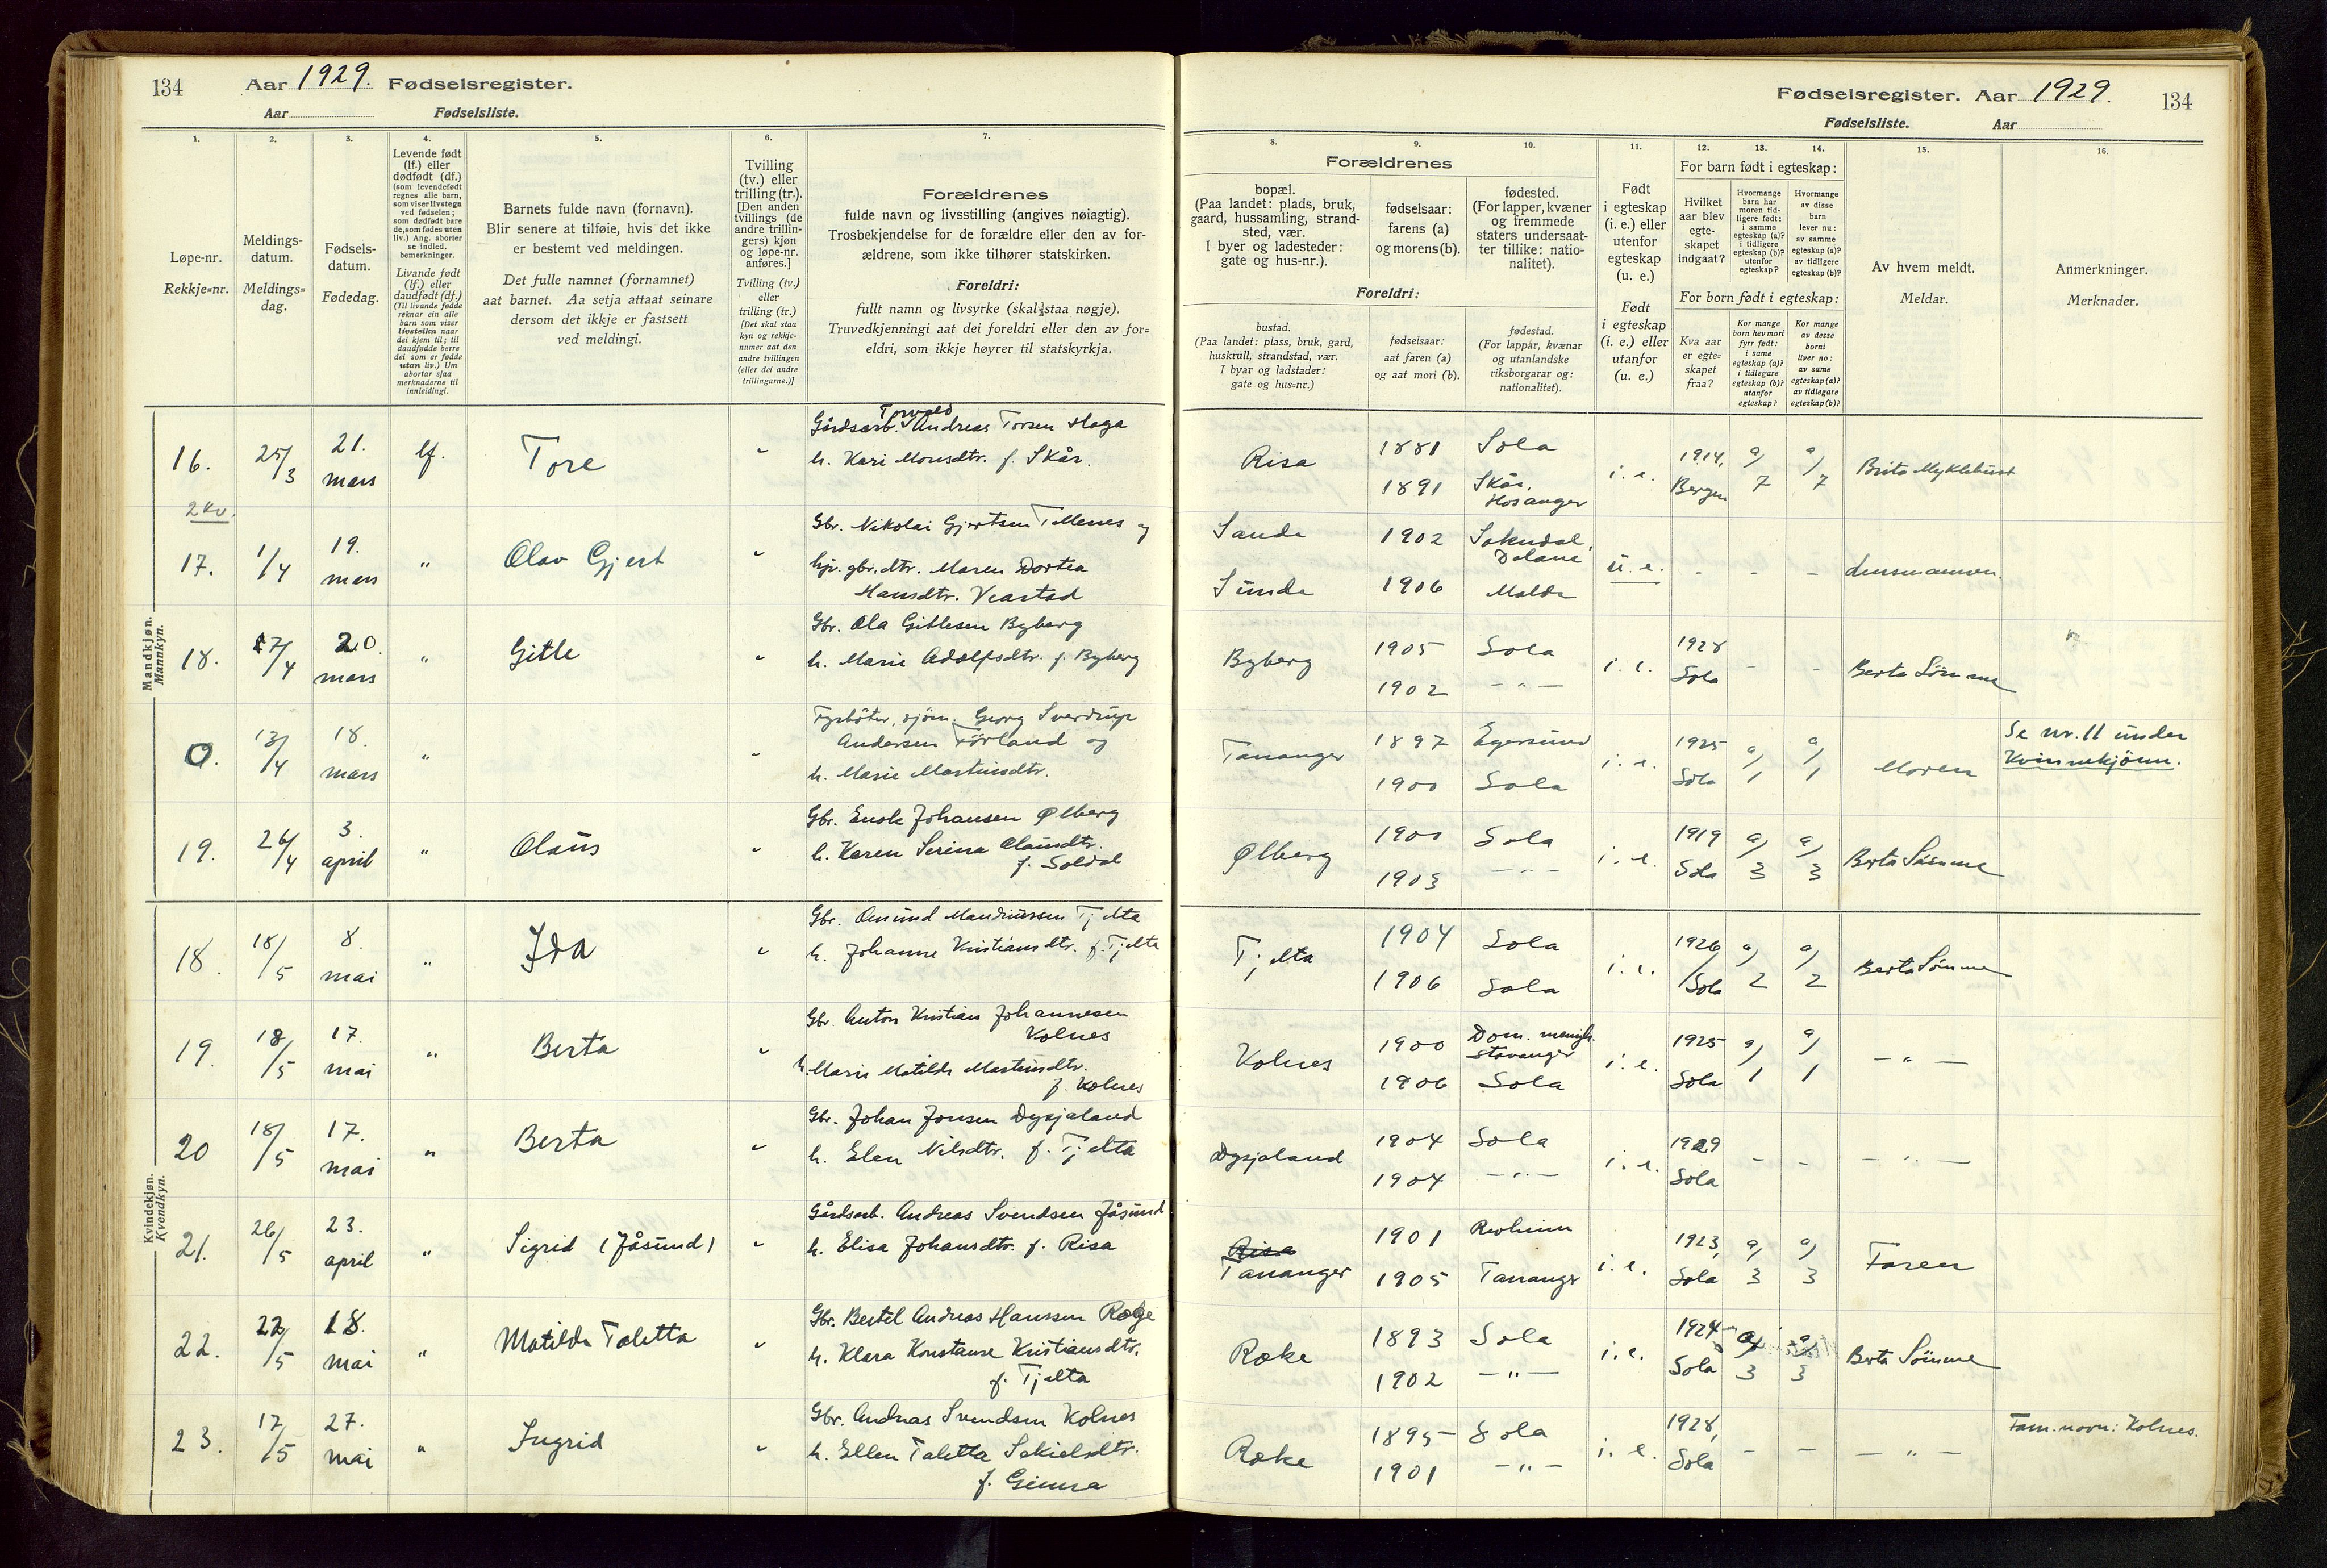 134 Aar 1929. Fødselsregister.
Aar Fødselsliste.
1. 2. 3. 4. 5. 6. 7.
Løpe-nr.
Rekkje=nr.
Meldings-
datum.
Meldings=
dag.
Fødsels-
datum.
Fødedag.
Levende født
(lf.) eller
dødfødt (df.)
(som levendefødt
regnes alle barn,
som viser livstegn
ved fødselen;
som dødfødt bare
de, som fødes uten
liv.) Ang. aborter
se indled.
bemerkninger.
Livande født
(lf.) eller
daudfødt (df.)
(Til livande fødde
reknar ein alle
barn som viser
livsteikn naar
dei kjem til; til
daudfødde berre
dei som er fødde
utan liv.) Um
abortar sjaa
merknaderne til
innleidingi.
Barnets fulde navn (fornavn).
Blir senere at tilføie, hvis det ikke
er bestemt ved meldingen.
Det fulle namnet (fornamnet)
aat barnet. Aa setja attaat seinare
dersom det ikkje er fastsett
ved meldingi.
Tvilling
(tv.) eller
trilling (tr.).
[Den anden
tvillings (de
andre trillin-
gers) kjøn
og løpe-nr.
anføres.]
Tvilling (tv.)
eller
trilling (tr.)
[Det skal staa
kyn og rekkje-
numer aat den
andre tvillingen
(eller dei andre
trillingarne.)]
Forældrenes
fulde navn og livsstilling (angives nøiagtig).
Trosbekjendelse for de forældre eller den av for-
ældrene, som ikke tilhører statskirken.
Foreldri:
fullt namn og livsyrke (skal staa nøgje).
Truvedkjenningi aat dei foreldri eller den av for=
eldri, som ikkje høyrer til statskyrkja.
Mandkjøn.
Mannkyn.
16. 25/3 21. mars lf. Tore "
Torvald
Gårdsarb. Andreas Torsen Haga
h. Kari Monsdtr. f. Skår.
2 Kv.
17. 1/4 19. mars " Olav Gjert "
Gbr. Nikolai Gjertsen Tellenes og
hjv. gbr.dtr. Maren Dortea
Hansdtr. Veastad
18. 17/4 20. mars " Gitle "
Gbr. Ola Gitlesen Byberg
h. Marie Adolfsdtr. f. Byberg
0. 13/4 18. mars " "
Fyrbøter, sjøm. Georg Sverdrup
Andersen Førland og
h. Marie Martinsdtr.
19. 26/4 3. april " Olaus "
Gbr. Enok Johansen Ølberg
h. Karen Serina Olausdtr.
f. Soldal
Kvindekjøn.
Kvendkyn.
18. 18/5 8. mai " Ida "
Gbr. Amund Mandiussen Tjelta
h. Johanne Kristiansdtr. f. Tjelta
19. 18/5 17. mai " Berta "
Gbr. Anton Kristian Johannesen
Kolnes
h. Marie Matilde Martinsdtr.
f. Kolnes
20 18/5 17. mai " Berta "
Gbr. Johan Jonsen Dysjaland
h. Elen Nilsdtr. f. Tjelta
21. 26/5 23. april " Sigrid (Jåsund) "
Gårdsarb. Andreas Svendsen Jåsund
h. Elisa Johansdtr. f. Risa
22. 22/5 18. mai " Matilde Taletta "
Gbr. Bertel Andreas Hanssen Røge
h. Klara Konstanse Kristiansdtr.
f. Tjelta
23. 17/5 27. mai " Ingrid "
Gbr. Andreas Svendsen Kolnes
h. Ellen Taletta Sekielsdtr.
f. Gimra
Fødselsregister. Aar 1929. 134
Fødselsliste. Aar
8. 9. 10. 11. 12. 13. 14. 15. 16.
Forældrenes
bopæl.
(Paa landet: plads, bruk,
gaard, hussamling, strand-
sted, vær.
I byer og ladesteder:
gate og hus-nr.).
fødselsaar:
farens (a)
og morens (b).
fødested.
(For lapper, kvæner
og fremmede
staters undersaat-
ter tillike: natio-
nalitet).
Foreldri:
bustad.
(Paa landet: plass, bruk, gard,
huskrull, strandstad, vær.
I byar og ladstader:
gate og hus-nr.)
fødselsaar:
aat faren (a)
og aat mori (b).
fødestad.
(For lappar, kvænar
og utanlandske
riksborgarar og:
nationalitet).
Født
i egteskap
(i. e.) eller
utenfor
egteskap
(u. e.)
Født
i egteskap
(i. e.) eller
utanfor
(u. e.)
For barn født i egteskap:
Hvilket
aar blev
egte-
skapet
indgaat?
Hvormange
barn har
moren tid-
ligere født:
i samme
egteskap (a)?
i tidligere
egteskap (b)?
utenfor
egteskap?
Hvormange
av disse
barn
lever nu:
av samme
egteskap (a)?
av tidligere
egteskap (b)?
For born født i egteskap:
Kva aar
er egte-
skapet
fraa?
Kor mange
born hev mori
fyrr født:
i same
egteskap (a)?
i tidlegare
egteskap (b)?
utanfor
egteskap?
Kor mange
av desse
borni
liver no:
av same
egteskap (a)?
av tidlegare
egteskap (b)?
Av hvem meldt.
Meldar.
Anmerkninger.
Merknader.
Risa 1881 Sola i. e. 1914, a) a) Brita Myklebust
1891 Skår, Bergen 7 7
Hosanger
Sande 1902 Sokndal,
Dalane u. e. - - - Lensmannen.
Sunde 1906 Molde
Byberg 1905 Sola i. e. 1928 - - Berta Sømme
1902 - " - Sola
Tananger 1897 Egersund i. e. 1925 a) a) Moren
1900 Sola Sola 1 1
Se nr. 11 under
Kvinnekjønn.
Ølberg 1900 Sola i. e. 1919 a) a) Berta Sømme
1903 - " - Sola 3 3
Tjelta 1904 Sola i. e. 1926 a) a) Berta Sømme
1906 Sola Sola 2 2
Kolnes 1900 Dom. menigh.
Stavanger i. e. 1925 a) a) - " -
1906 Sola Sola 1 1
Dysjaland 1904 Sola i. e. 1929 - - - " -
1904 - " - Sola
Risa
Tananger 1901 Revheim i. e. 1923, a) a) Faren
1905 Tananger Sola 3 3
Røke 1893 Sola i. e. 1924 a) a) Berta Sømme
1902 - " - Sola 3 3
Røke 1895 Sola i. e. 1928, - - - " - Fam.navn: Kolnes.
1901 - " - Sola